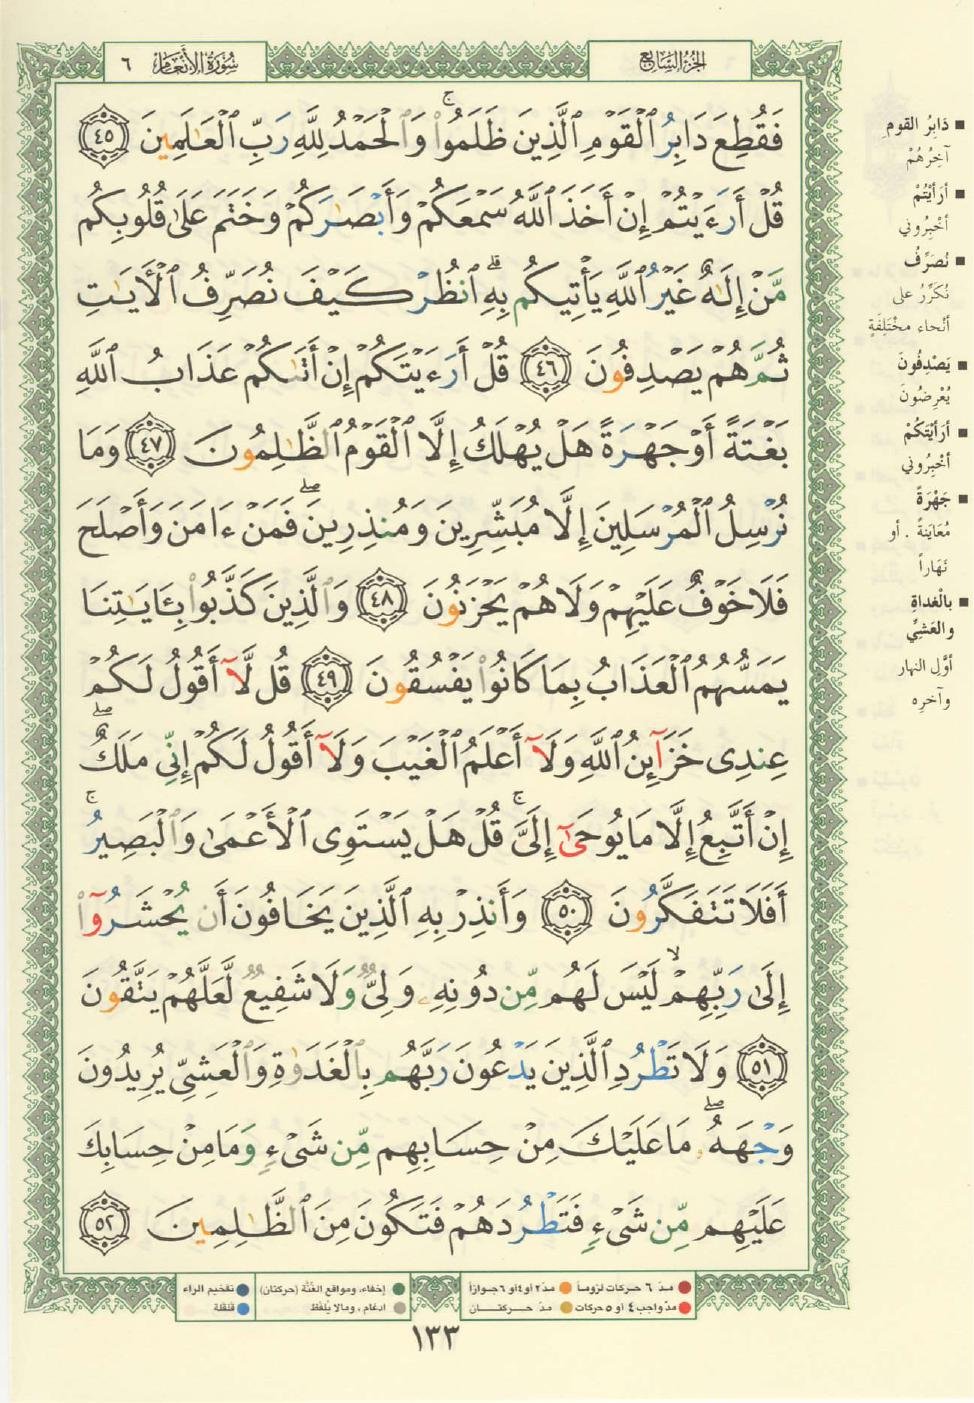 الجزء السابع
سورة الأنعام ٦
فَقُطِعَ دَابِرُ ٱلْقَوْمِ ٱلَّذِينَ ظَلَمُوا۟ ۚ وَٱلْحَمْدُ لِلَّهِ رَبِّ ٱلْعَـٰلَمِينَ ٤٥
قُلْ أَرَءَيْتُمْ إِنْ أَخَذَ ٱللَّهُ سَمْعَكُمْ وَأَبْصَـٰرَكُمْ وَخَتَمَ عَلَىٰ قُلُوبِكُم
مَّنْ إِلَـٰهٌ غَيْرُ ٱللَّهِ يَأْتِيكُم بِهِ ۗ ٱنظُرْ كَيْفَ نُصَرِّفُ ٱلْـَٔايَـٰتِ
ثُمَّ هُمْ يَصْدِفُونَ ٤٦ قُلْ أَرَءَيْتَكُمْ إِنْ أَتَىٰكُمْ عَذَابُ ٱللَّهِ
بَغْتَةً أَوْ جَهْرَةً هَلْ يُهْلَكُ إِلَّا ٱلْقَوْمُ ٱلظَّـٰلِمُونَ ٤٧ وَمَا
نُرْسِلُ ٱلْمُرْسَلِينَ إِلَّا مُبَشِّرِينَ وَمُنذِرِينَ ۖ فَمَنْ ءَامَنَ وَأَصْلَحَ
فَلَا خَوْفٌ عَلَيْهِمْ وَلَا هُمْ يَحْزَنُونَ ٤٨ وَٱلَّذِينَ كَذَّبُوا۟ بِـَٔايَـٰتِنَا
يَمَسُّهُمُ ٱلْعَذَابُ بِمَا كَانُوا۟ يَفْسُقُونَ ٤٩ قُل لَّآ أَقُولُ لَكُمْ
عِندِى خَزَآئِنُ ٱللَّهِ وَلَآ أَعْلَمُ ٱلْغَيْبَ وَلَآ أَقُولُ لَكُمْ إِنِّى مَلَكٌ ۖ
إِنْ أَتَّبِعُ إِلَّا مَا يُوحَىٰٓ إِلَىَّ ۚ قُلْ هَلْ يَسْتَوِى ٱلْأَعْمَىٰ وَٱلْبَصِيرُ ۚ
أَفَلَا تَتَفَكَّرُونَ ٥٠ وَأَنذِرْ بِهِ ٱلَّذِينَ يَخَافُونَ أَن يُحْشَرُوٓا۟
إِلَىٰ رَبِّهِمْ ۙ لَيْسَ لَهُم مِّن دُونِهِۦ وَلِىٌّ وَلَا شَفِيعٌ لَّعَلَّهُمْ يَتَّقُونَ
٥١ وَلَا تَطْرُدِ ٱلَّذِينَ يَدْعُونَ رَبَّهُم بِٱلْغَدَوٰةِ وَٱلْعَشِىِّ يُرِيدُونَ
وَجْهَهُۥ ۖ مَا عَلَيْكَ مِنْ حِسَابِهِم مِّن شَىْءٍ وَمَا مِنْ حِسَابِكَ
عَلَيْهِم مِّن شَىْءٍ فَتَطْرُدَهُمْ فَتَكُونَ مِنَ ٱلظَّـٰلِمِينَ ٥٢
■ دَابِرُ القومِ
آخِرُهُمْ
■ أرَأَيْتُمْ
أخْبِرُوني
■ نُصَرِّفُ
نُكَرِّرُ على
أنحاء مختَلِفَةٍ
■ يَصْدِفُونَ
يُعْرِضُونَ
■ أرَأَيْتَكُمْ
أخْبِرُوني
■ جَهْرَةً
مُعَاينةً . أو
نَهَاراً
■ بالْغداةِ
والعَشيِّ
أوَّل النهار
وآخرِه
مدّ ٦ حركات لزوماً مدّ ٢ أو ٤ أو ٦ جوازاً
مدّ واجب ٤ أو ٥ حركات مدّ حركتان
إخفاء، ومواقع الغُنَّة (حركتان) تفخيم الراء
ادغام ، ومالا يُلفَظ قلقلة
١٣٣